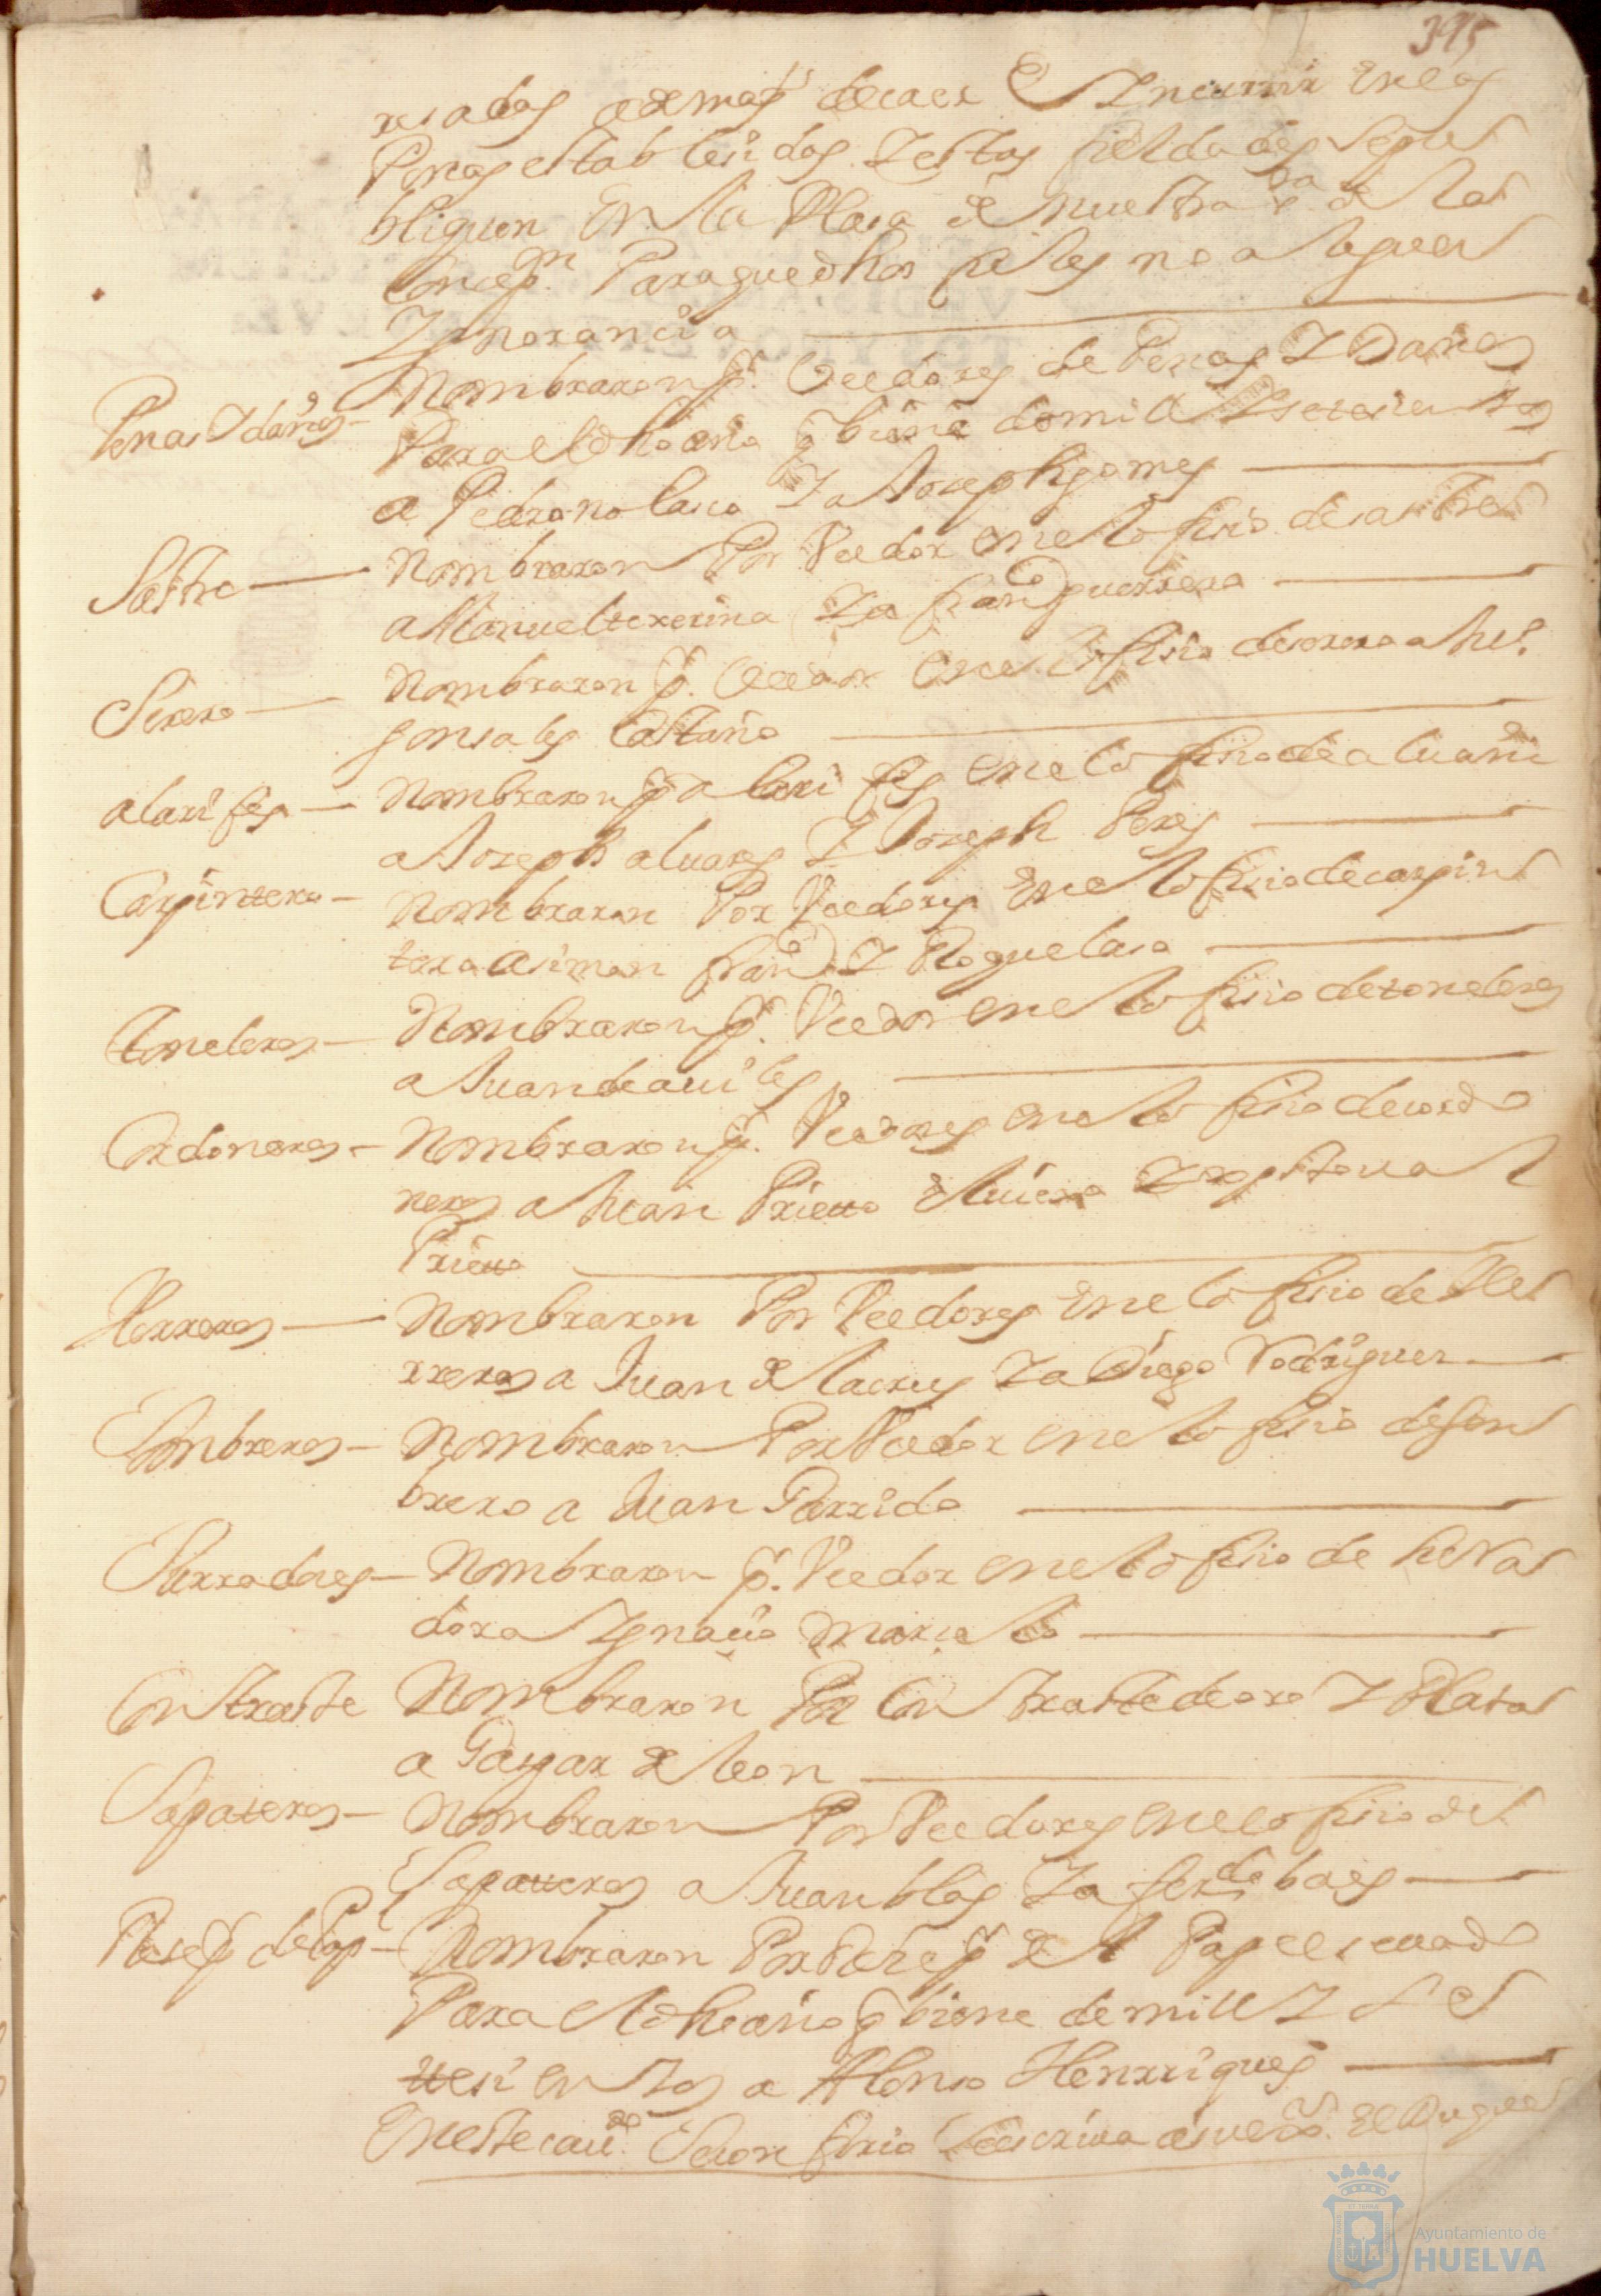 395
xiados ademas de caer E Incurrir en las
Penas establesidas Y estas fieldades se pu
bliquen En la Plasa de nuestra Sra de la
Consepn Para que dhos fieles no aleguen
Ygnorancia
Penas Y daños
Nombraron pr Veedores de Penas Y Daños
Para el dho año q biene de mil Y setesientos
a Pedro nolasco Y a Joseph gomes
Sastre
Nombraron Por Veedor en el ofisio de sastre
a Manuel texerina Ya franco guerrero
Serero
Nombraron pr Veedor en el ofisio de serero a
gonsales Castaño
alarifes
Nombraron pr alarifes en el ofisio de aluañi
a Joseph aluares Y Joseph Peres
Carpintero
Nombraron Por Veedores En el ofisio de carpin
tero a simon franco Y Roque laso
Toneleros
Nombraron pr Veedor en el ofisio de toneleros
a Juan de auiles
Cordoneros
Nombraron pr Veedores en el ofisio de cordo
neros a Juan Prietto Y Xptoual
Prietto
Herreros
Nombraron Por Veedores En el ofisio de He
rreros a Juan de la crus Ya Diego Rodriguez
Sombreros
Nombraron Por Veedor en el ofisio de som
brero a Juan Garrido
Herradores
Nombraron pr Veedor en el ofisio de herra
dor a Ygnacio
Contraste
Nombraron Por Contraste de oro Y Plata
a Gaspar de leon
Sapateros
Nombraron Por Veedores en el ofisio de
Sapatteros a Juan blas Ya ferdo baes
Resepr de Pap
Nombraron Por Resepr del Papel sellado
Para el dho año q biene de mill Y se
ttesientos a Alonso Henrriques
En este cauildo Se escriua a su exa El Duque
Ayuntamiento de
HUELVA